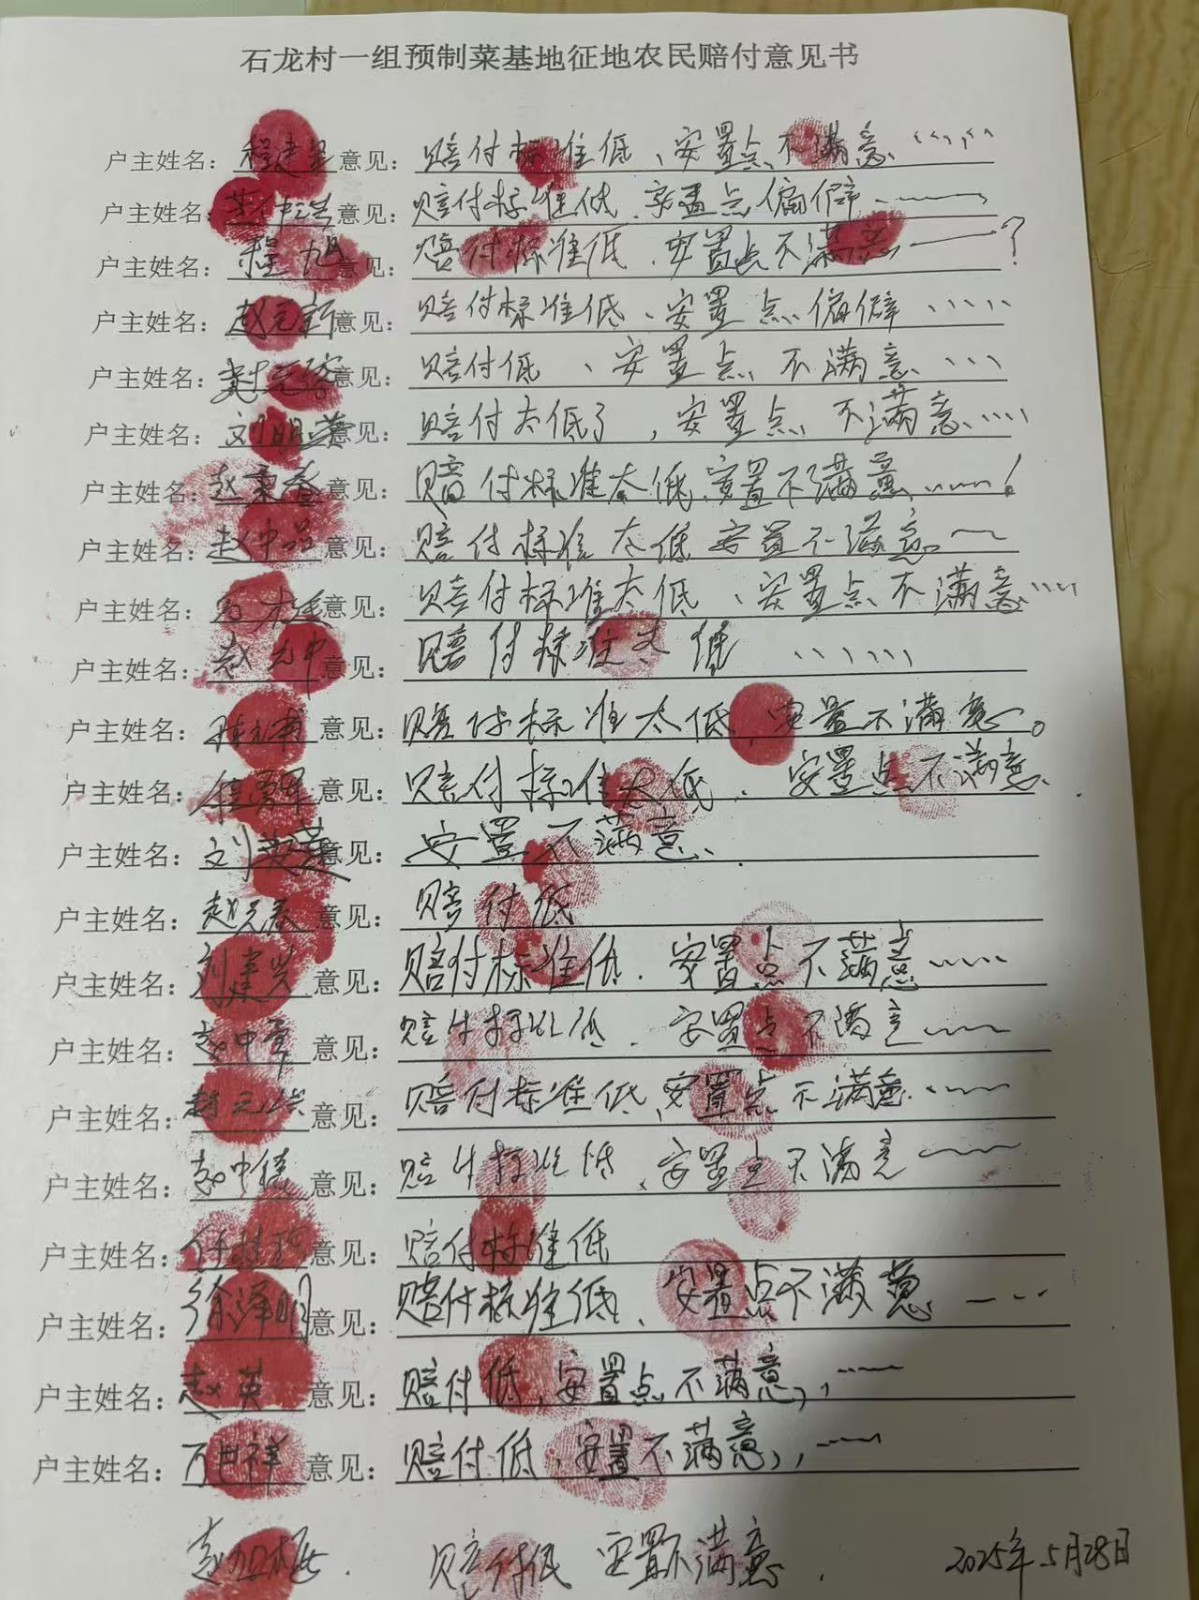 石龙村一组预制菜基地征地农民赔付意见书
户主姓名： 意见：赔付标准低、安置点不满意……
户主姓名： 意见：赔付标准低、安置点偏僻……
户主姓名：程旭 意见：赔付标准低、安置点不满意——？
户主姓名：赵元新 意见：赔付标准低、安置点偏僻……
户主姓名： 意见：赔付低、安置点不满意……
户主姓名：刘明 意见：赔付太低了，安置点不满意……
户主姓名：赵秉春 意见：赔付标准太低、安置不满意……！
户主姓名：赵中品 意见：赔付标准太低 安置不满意。
户主姓名： 意见：赔付标准太低、安置点不满意……
户主姓名：赵元中 意见：赔付标准太低……
户主姓名： 意见：赔付标准太低，安置不满意。
户主姓名： 意见：赔付标准太低、安置点不满意、
户主姓名：刘 意见：安置不满意、
户主姓名：赵元春 意见：赔付低
户主姓名：刘建 意见：赔付标准低、安置点不满意……
户主姓名：赵中 意见：赔付标准低、安置点不满意……
户主姓名：赵元 意见：赔付标准低、安置点不满意……
户主姓名：赵中 意见：赔付标准低、安置点不满意……
户主姓名：任 意见：赔付标准低
户主姓名：徐泽明 意见：赔付标准低、安置点不满意……
户主姓名：赵英 意见：赔付低、安置点不满意，……
户主姓名：万世祥 意见：赔付低、安置不满意，……
赵 赔付低 安置不满意． 2025年5月28日